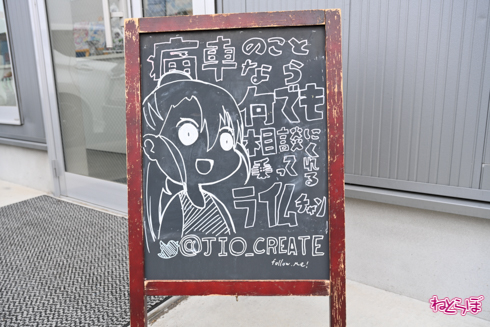 痛車のこと
なら
何でも
相談に
乗ってくれる
ライムチャン
@JIO_CREATE
follow me!
ねとらぼ